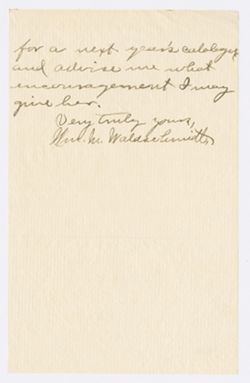 for a next year's catalogue
and advise me what
encouragement I may
give her.
Very truly yours,
Wm. M. Waldschmidt